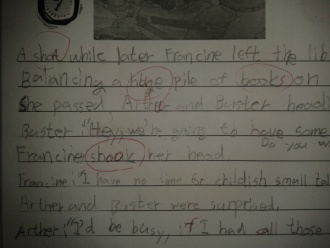 A shot while later Francine left the lib
Balancing a huge pile of books on
She passed Arthur and Buster headi
Buster: "Hey, we're going to have some
Do you w
Francine shook her head.
Francine: "I have no time for childish small tal
Arthur and Buster were surprised.
Arthur: "I'd be busy, if I had all those